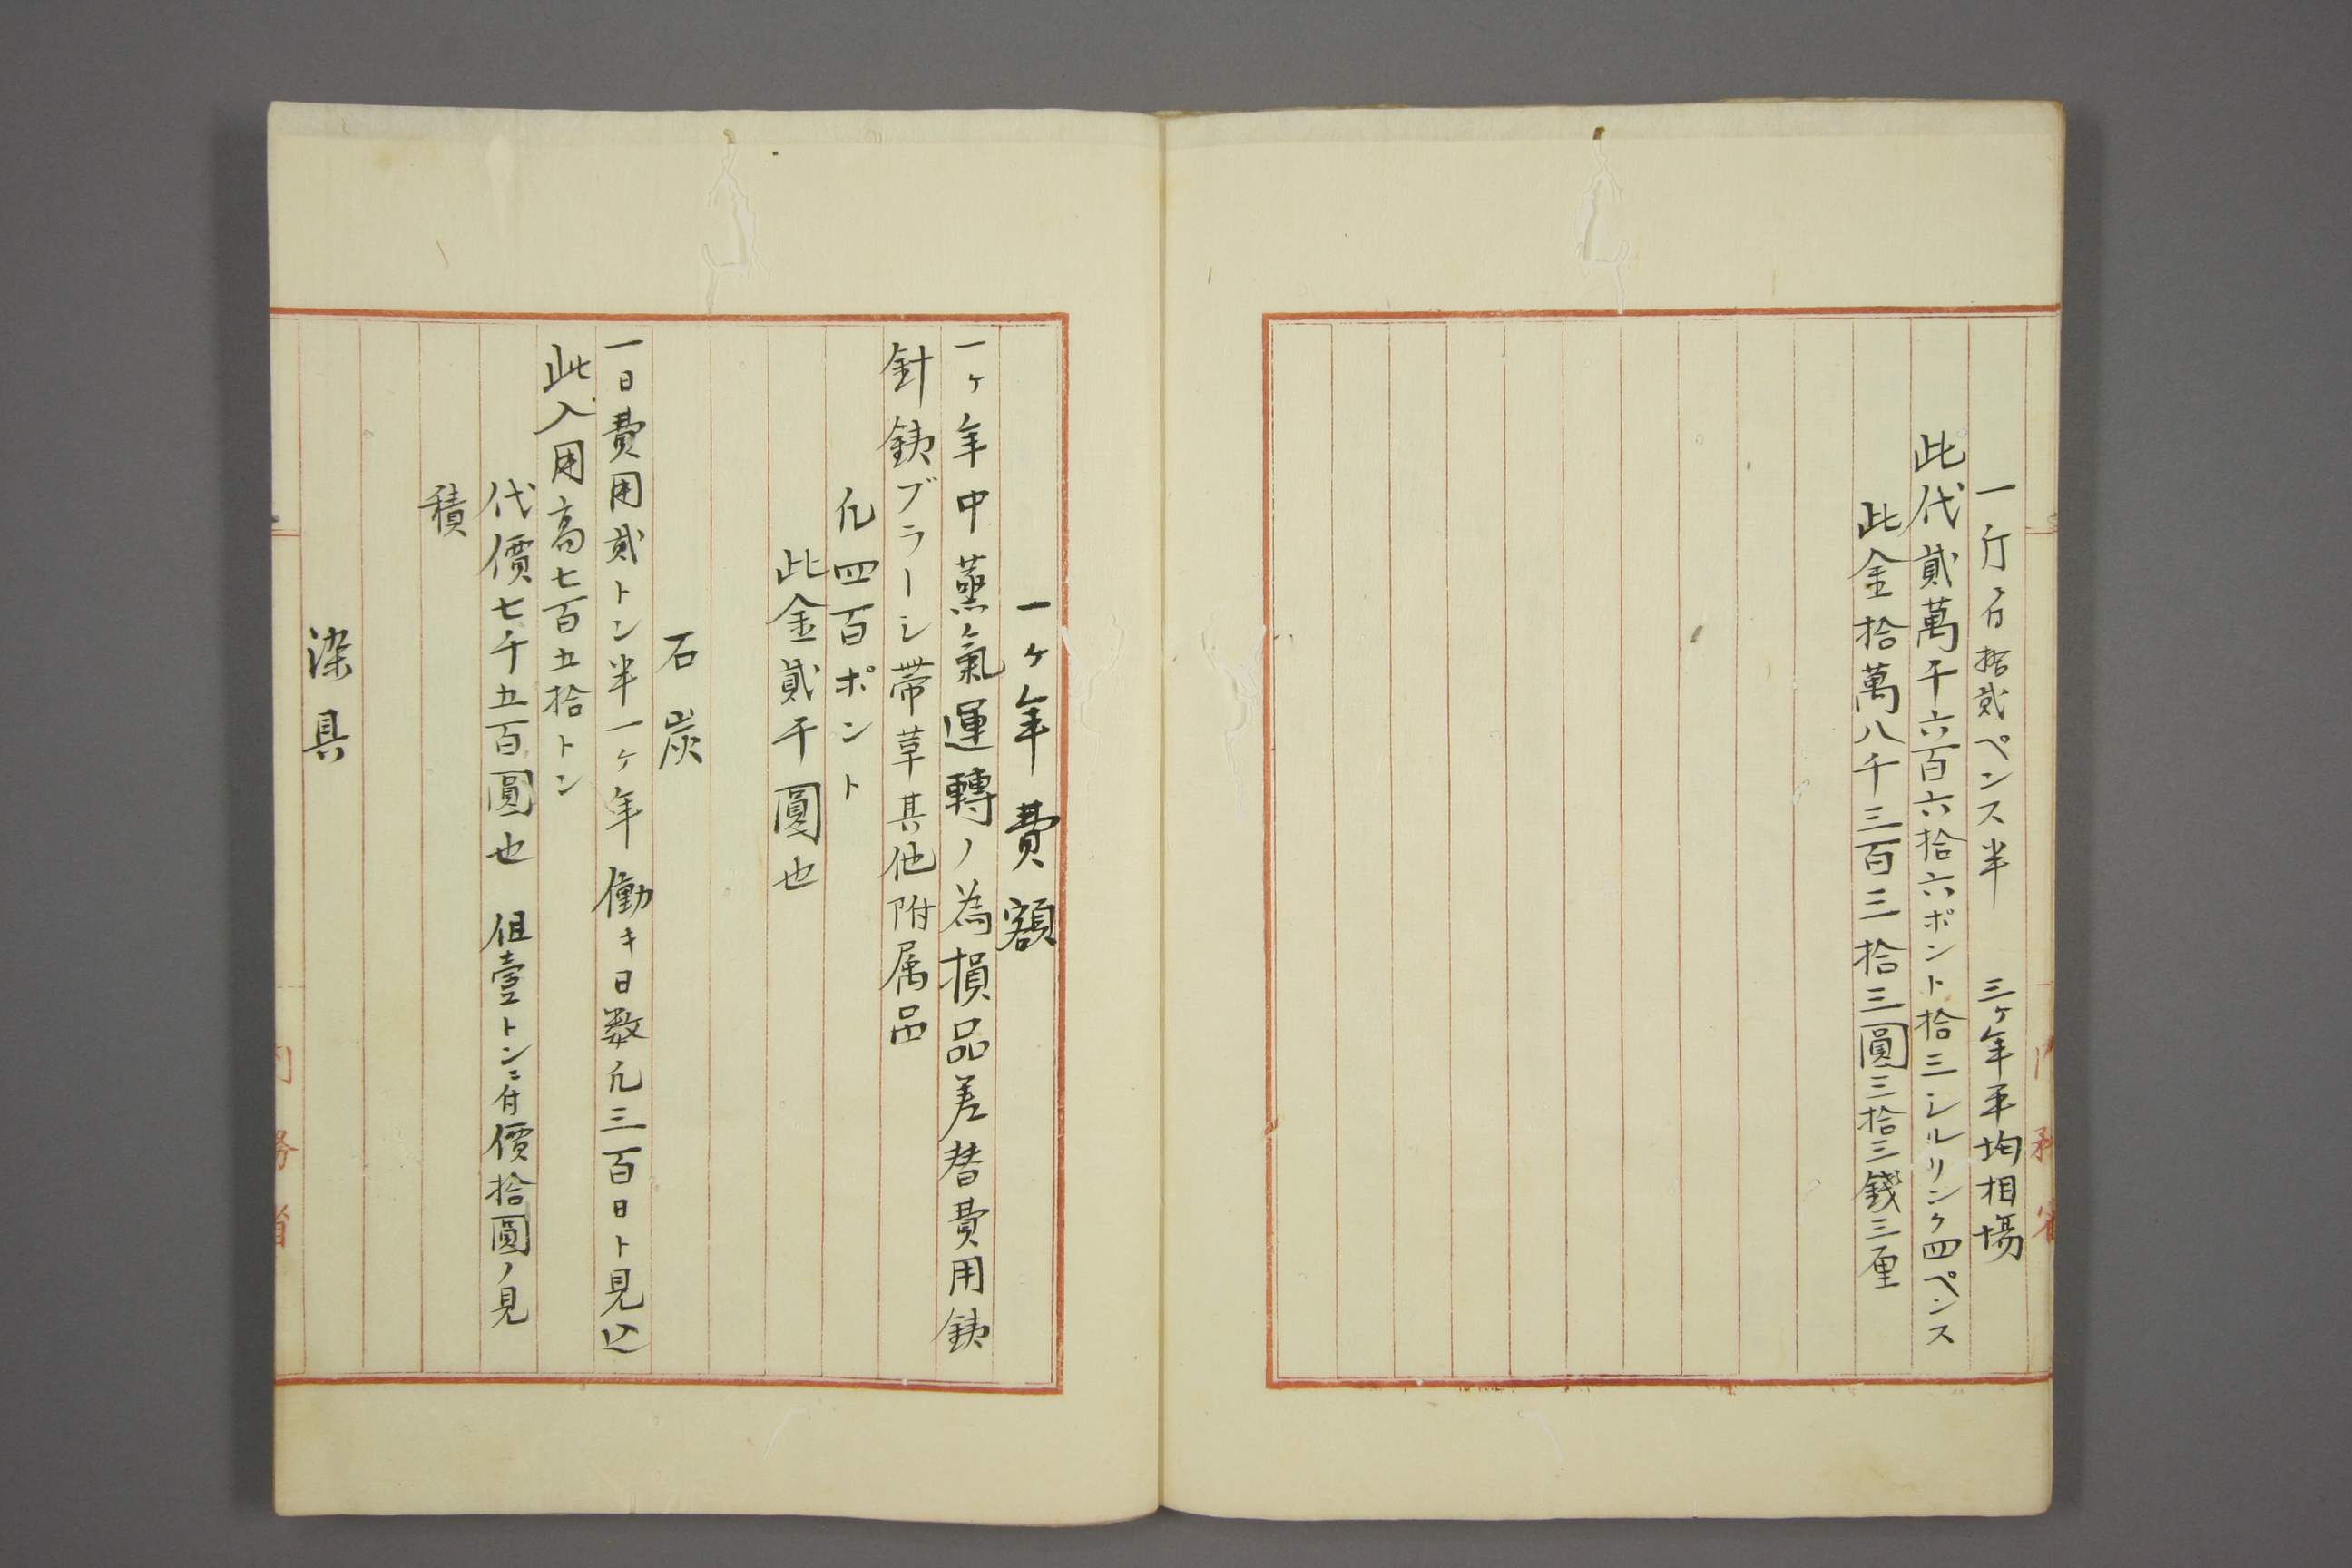 一斤ニ付拾貳ペンス半 三ヶ年平均相場
此代貳萬千六百六拾六ポント拾三シルリンク四ペンス
此金拾萬八千三百三拾三圓三拾三錢三厘
一ヶ年費額
一ヶ年中蒸氣運轉ノ為損品差替費用銕
針銕ブラーシ帯革其他附属品
凡四百ポント
此金貳千圓也
石炭
一日費用貳トン半一ヶ年働キ日数凡三百日ト見込
此入用高七百五拾トン
代價七千五百圓也 但壹トンニ付價拾圓ノ見
積
染具
内務省